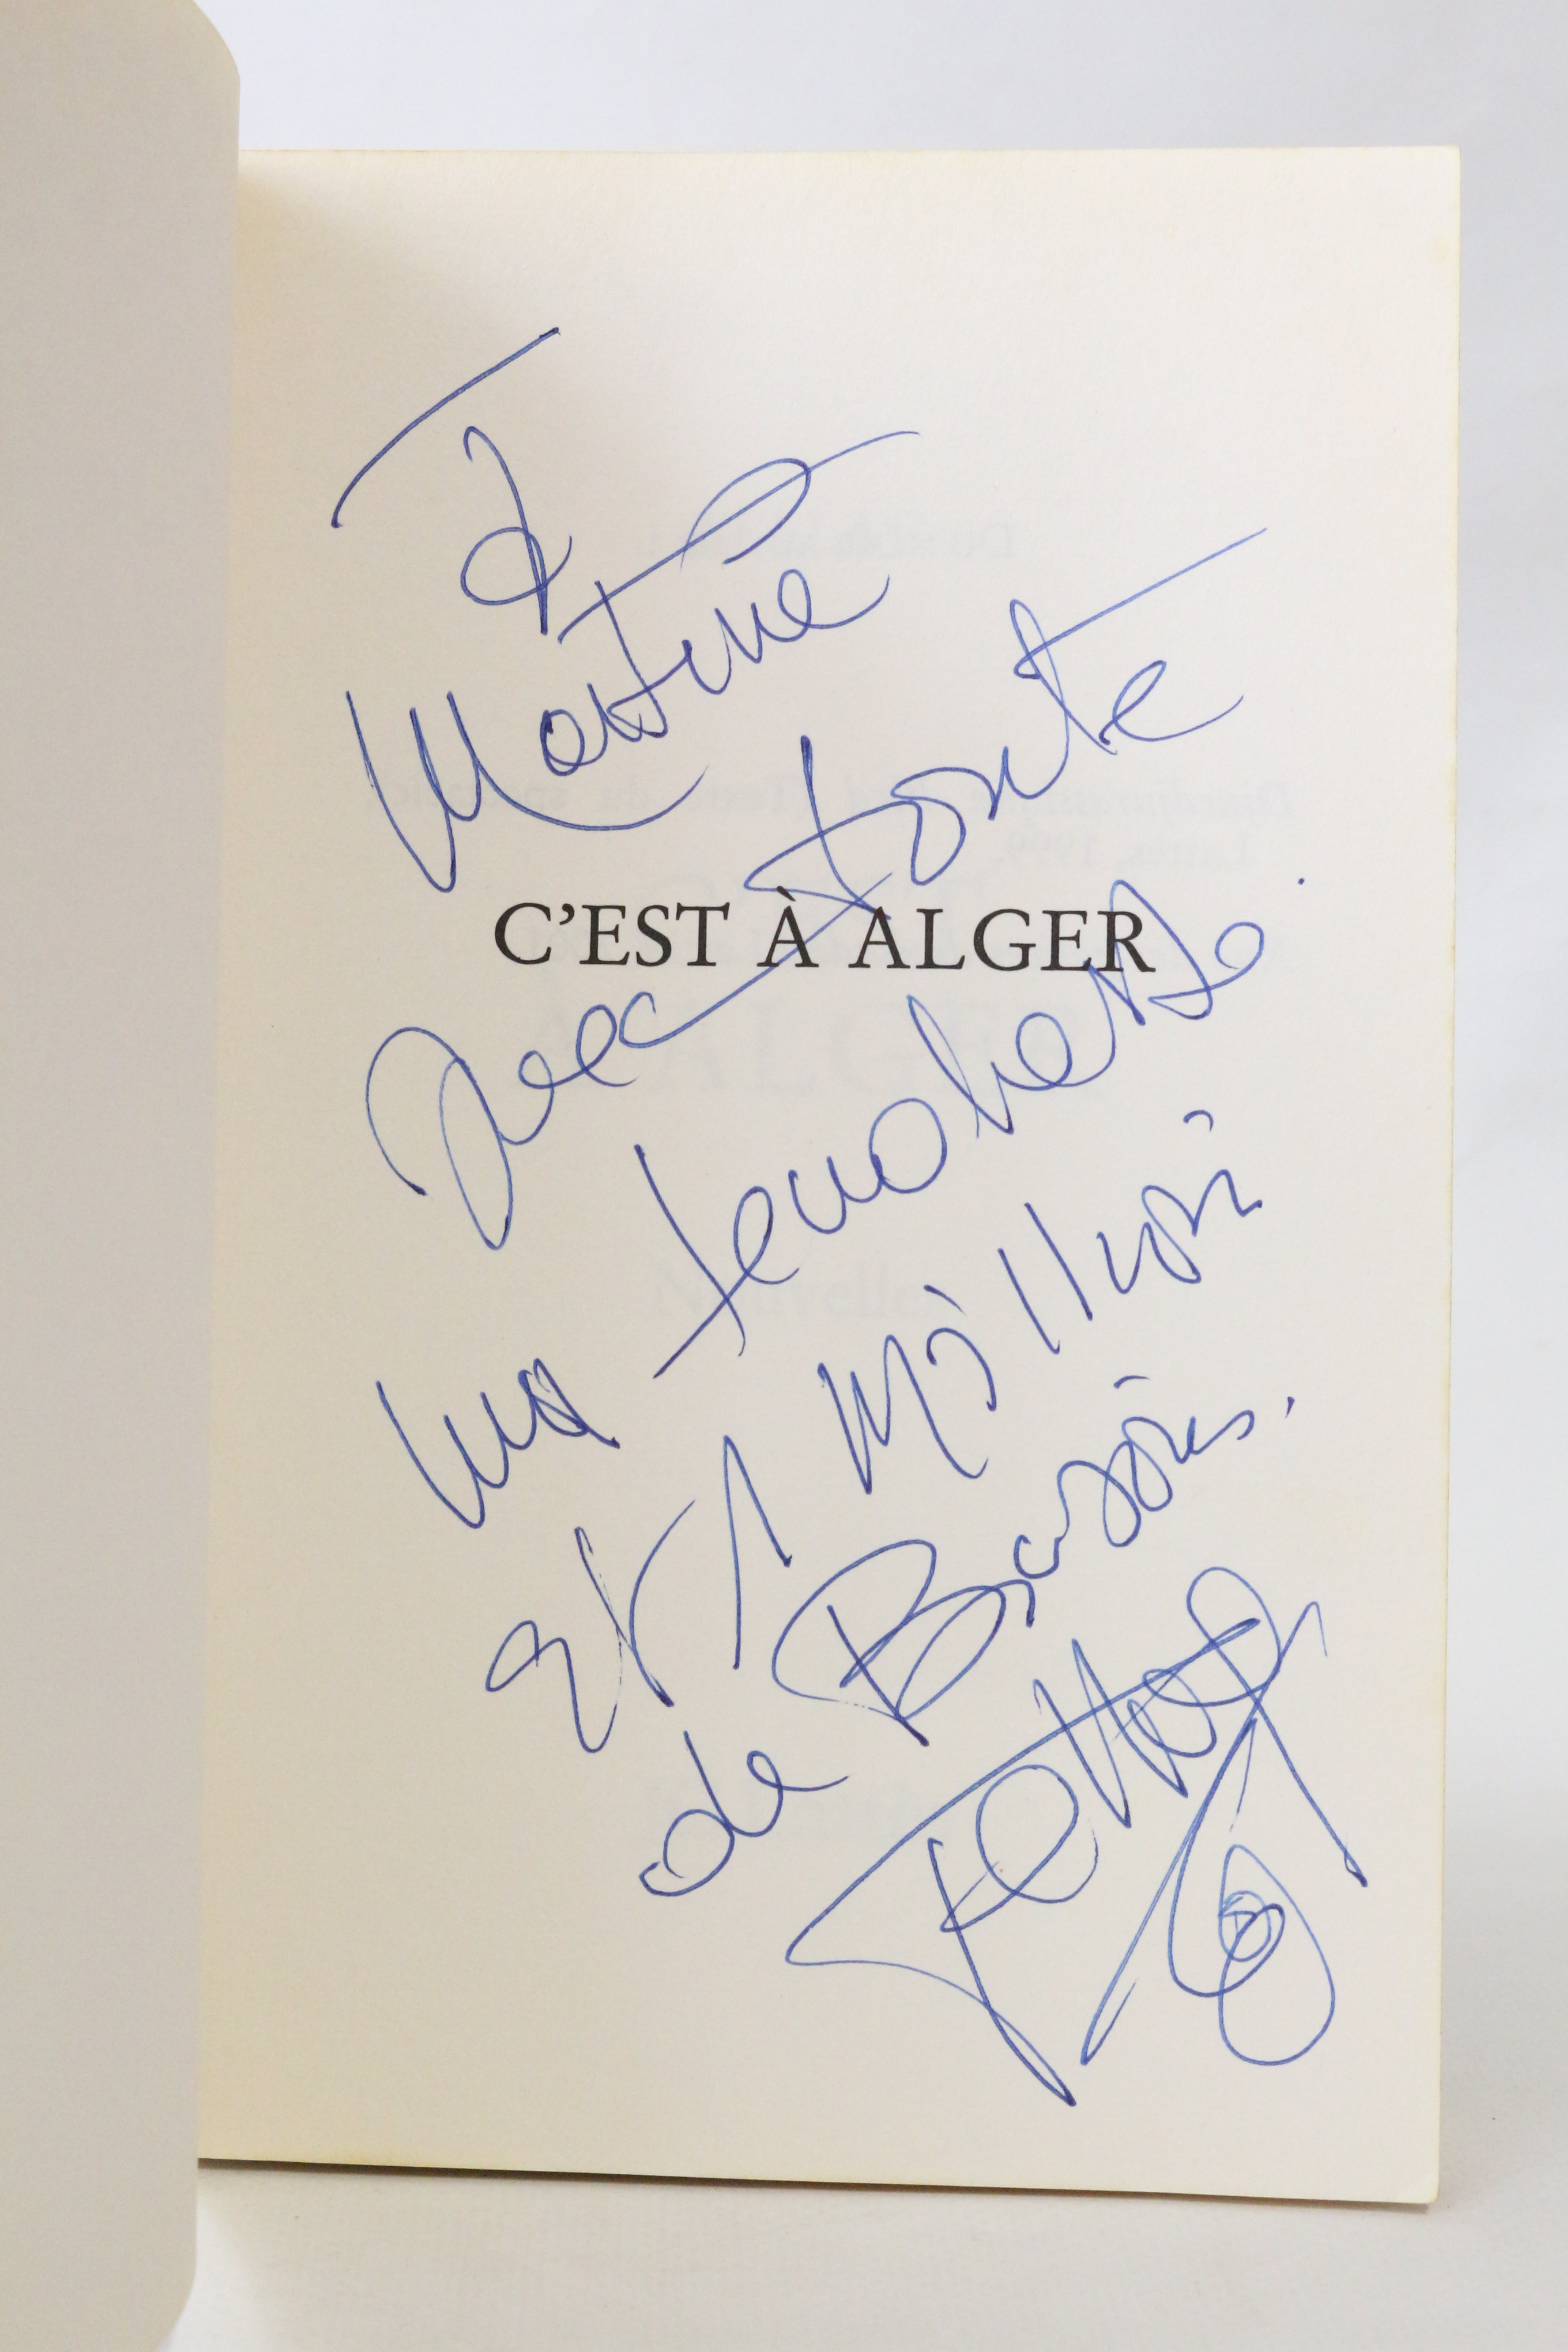 à
Martine
Avec toute
C'EST À ALGER
ma tendresse.
et 1 million
de Baisers.
Fellag